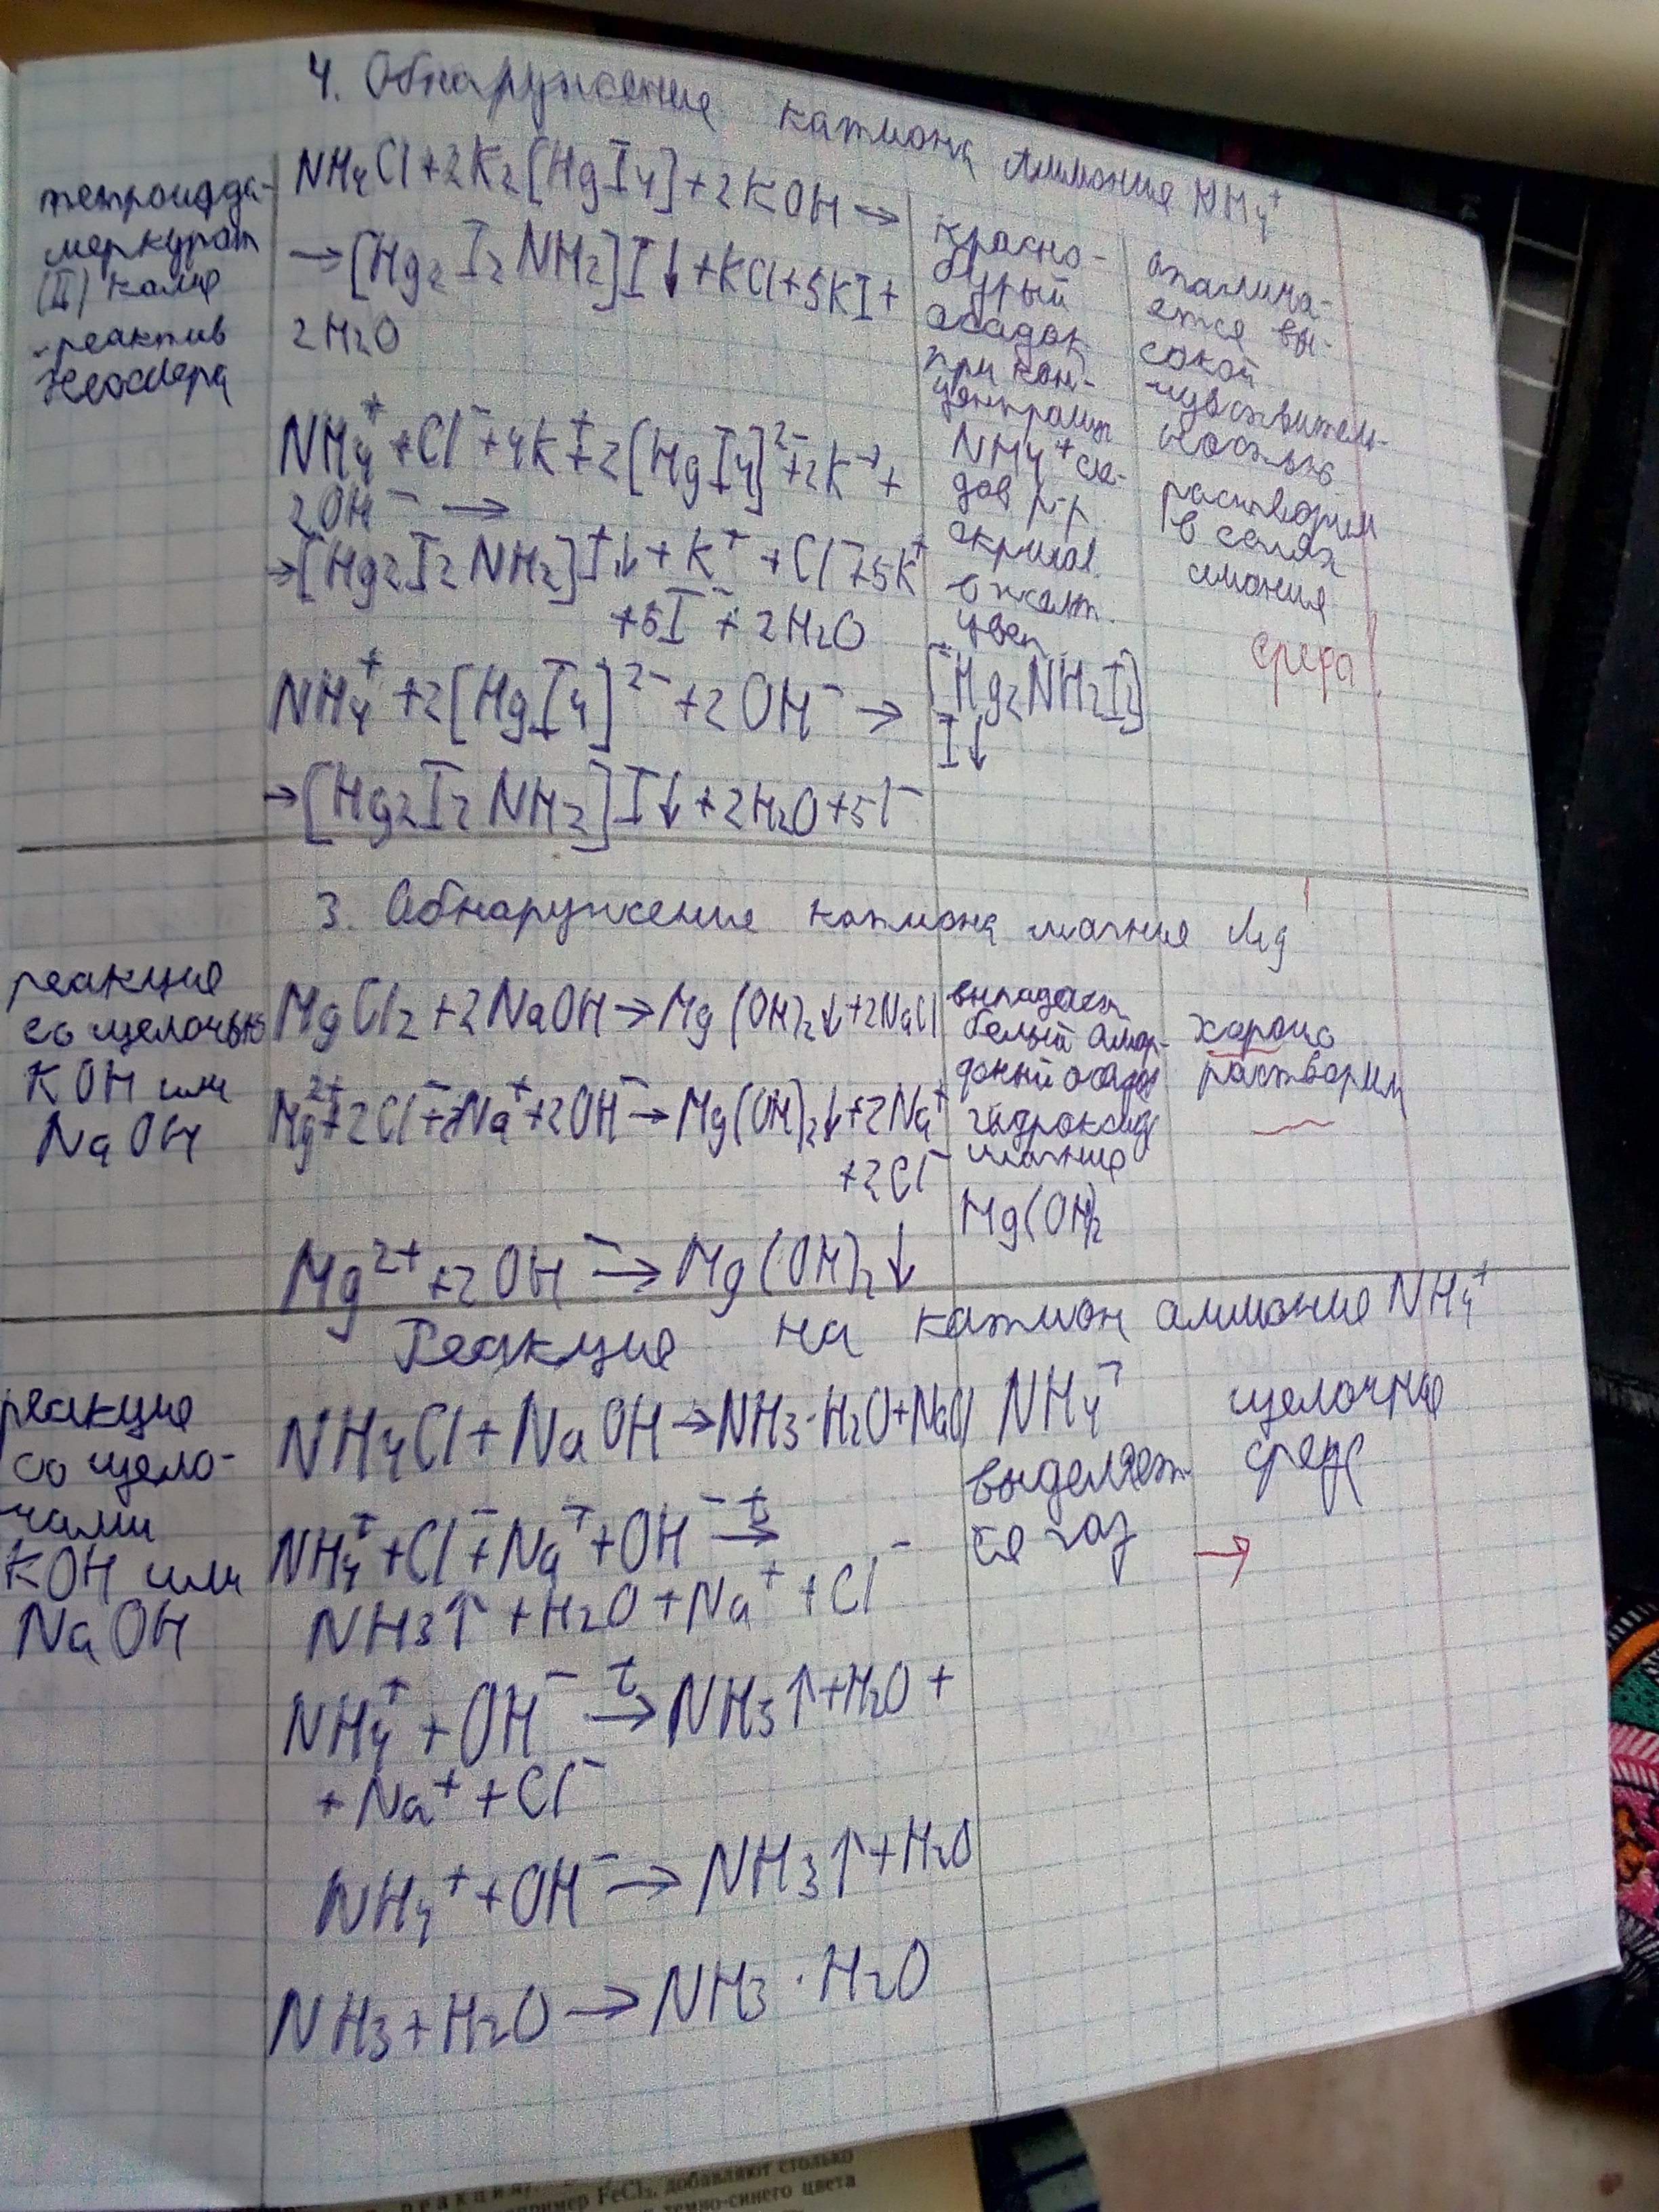 4. Обнаружение катиона Аммония NH4+
тетроидда-
меркурат
(II) калие
-реактив
Несслера
NH4Cl+2K2[HgI4]+2KOH→
→[Hg2I2NH2]I↓+KCl+5KI+
2H2O
NH4++Cl-+4K++2[HgI4]2-+2K++
2OH-→
→[Hg2I2NH2]I↓+K++Cl-+5K+
+5I-+2H2O
NH4++2[HgI4]2-+2OH-→
→[Hg2I2NH2]I↓+2H2O+5I-
красно-
бурый
осадок
при кон-
центрации
NH4+ сле-
дов р-р
окрашив.
в желт.
цвет
[Hg2NH2I2]
I↓
отлича-
ется вы-
сокой
чувствитель-
ностью
растворим
в солях
среда!
3. Обнаружение катиона магние Mg
реакцие
со щелочью
KOH или
NaOH
MgCl2+2NaOH→Mg(OH)2↓+2NaCl
Mg2++2Cl-+2Na++2OH-→Mg(OH)2↓+2Na+
+2Cl-
Mg2++2OH-→Mg(OH)2↓
выпадает
белый амор-
фный осадок
гидроксид
магние
Mg(OH)2
хорошо
растворим
Реакцие на катион аммоние NH4+
реакцие
со щело-
чами
KOH или
NaOH
NH4Cl+NaOH→NH3·H2O+NaCl
NH4++Cl-+Na++OH- t→
NH3↑+H2O+Na++Cl-
NH4++OH- t→ NH3↑+H2O+
+Na++Cl-
NH4++OH-→NH3↑+H2O
NH3+H2O→NH3·H2O
NH4+
выделяет
ся газ
щелочне
среде
→
реакция).
пример FeCl3, добавляют столько
темно-синего цвета